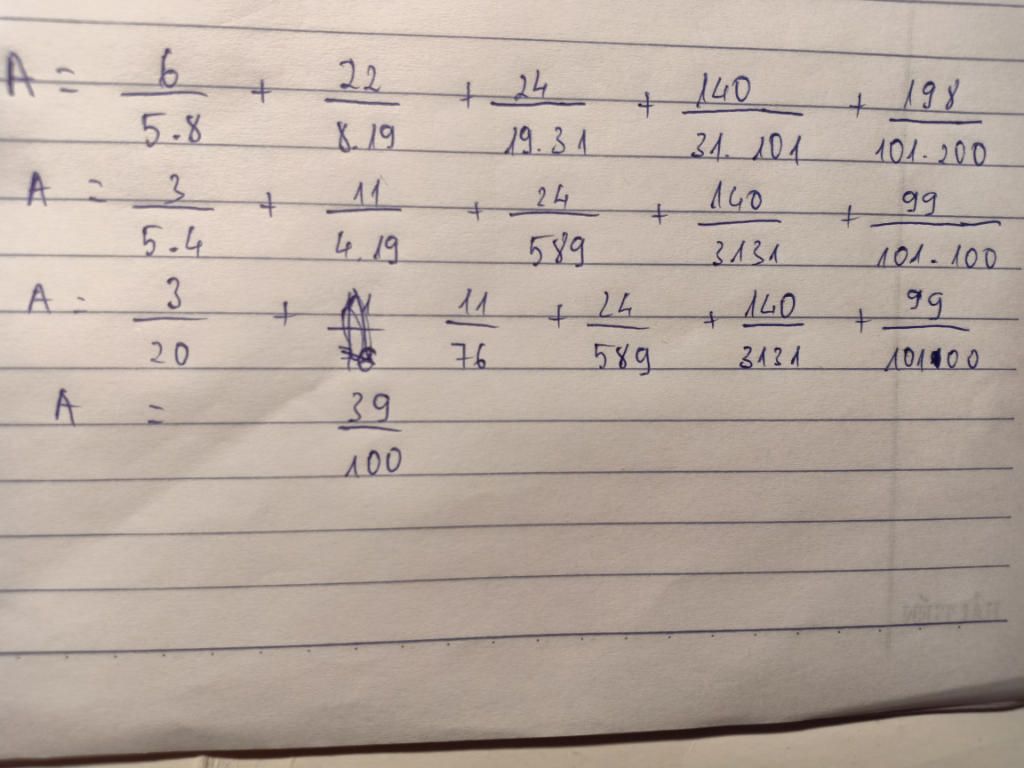 A = 6/5.8 + 22/8.19 + 24/19.31 + 140/31.101 + 198/101.200
A = 3/5.4 + 11/4.19 + 24/589 + 140/3131 + 99/101.100
A = 3/20 + 11/76 + 24/589 + 140/3131 + 99/10100
A = 39/100